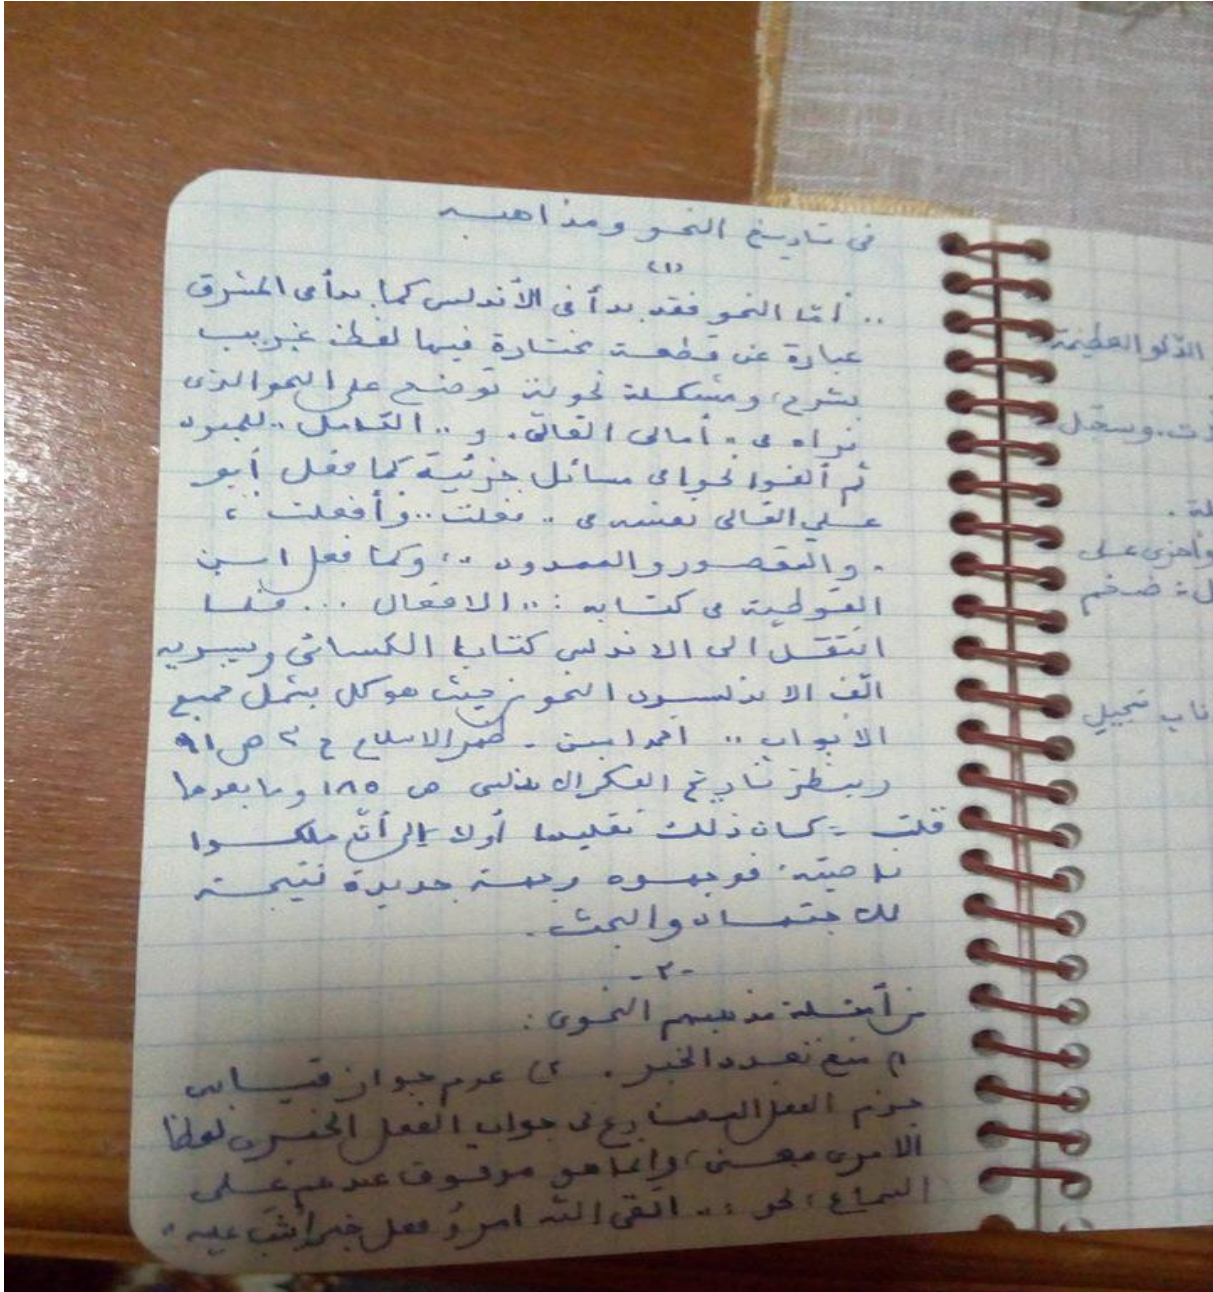 فى تاريخ النحو ومذاهبه
(١)
.. أمّا النحو فقد بدأ فى الأندلس كما بدأ فى المشرق
عبارة عن قطعة مختارة فيها لفظ غريب
يشرح، ومشكلة نحوية توضح على النحو الذى
نراه فى " أمالى القالى" و " الكامل " للمبرد
ثم ألفوا نحوا فى مسائل جزئية كما فعل أبو
على القالى نفسه فى " فعلت " وأفعلت "،
" والمقصور والممدود "، وكما فعل ابن
القوطية فى كتابه : " الافعال ... فلما
انتقل الى الاندلس كتابا الكسائى وسيبويه
الّف الاندلسيون النحو من حيث هو كل يشمل جميع
الابواب " احمد امين - ظهر الاسلام ج ٣ ص ٩١
وينظر تاريخ الفكر الاندلسى ص ١٨٥ وما بعدها
قلت : كان ذلك تقليدا أولا إلى أن ملكوا
ناصيته، فوجهوه وجهة جديدة نتيجة
للاجتهاد والبحث.
-٢-
من أمثلة مذهبهم النحوى :
١) منع تعدد الخبر . ٢) عدم جواز قياس
جزم الفعل المضارع فى جواب الفعل الخبرى لفظا
الامرى معنى، وإنما هو موقوف عندهم على
السماع، نحو : " اتقى الله امرؤ فعل خيرا يُثَب عليه "
العظيمة
وسقل
لة .
وأخرى على
ضخم